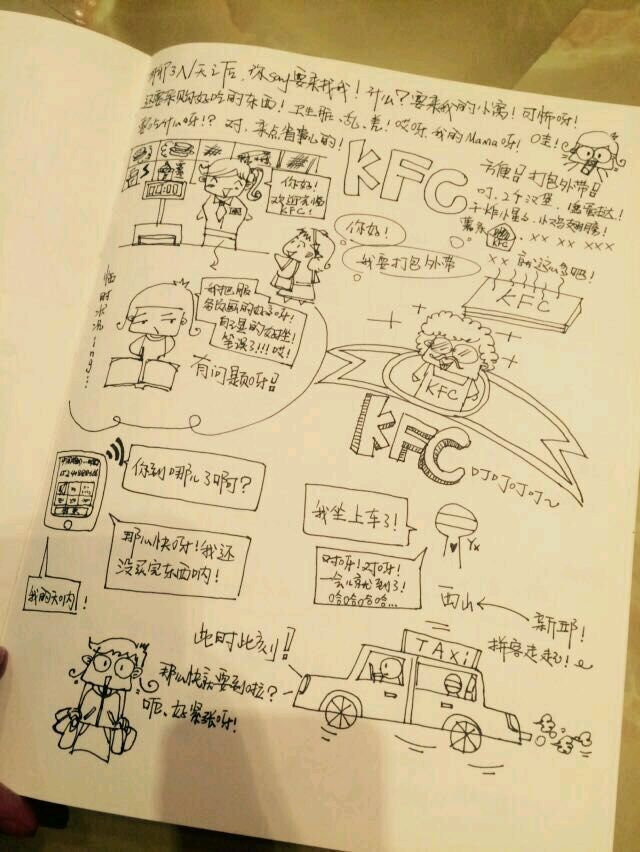 天之后,你say要来找我!什么?要来我的小窝!可怕呀!
还要采购好吃的东西!卫生脏、乱、差!哎呀,我的Mama呀!哇!
要吃什么呀!?对,来点省事儿的!
KFC
你好!
欢迎光临
KFC!
方便 打包外带
叮,2个汉堡,
小鸡翅膀!
KFC
XX XX XXX
XX 就这么多吧!
你好!
我要打包外带
KFC
临时状况ing...
我把服
务员画的好好呀!
自己画的好坐!
笔误了!!!哎!
有问题呀
KFC
KFC
叮叮叮叮~
你到哪儿了啊?
我坐上车了!
那么快呀!我还
没买完东西呐!
对呀!对呀!
一会儿就到了!
哈哈哈哈哈...
Yx
我的天呐!
西山 ← 新邨!
拼客走起!
此时此刻!
TAXi
那么快就要到啦?
呃、好紧张呀!